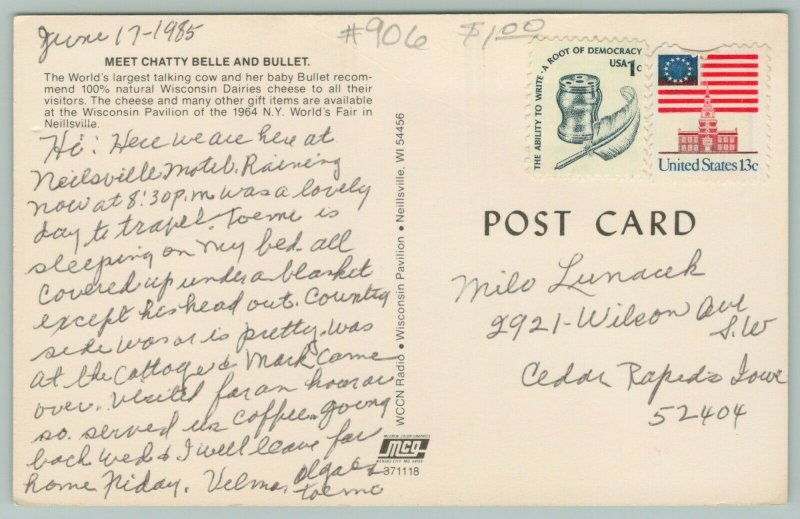 June 17-1985
#906 $1.00
MEET CHATTY BELLE AND BULLET.
The World's largest talking cow and her baby Bullet recom-
mend 100% natural Wisconsin Dairies cheese to all their
visitors. The cheese and many other gift items are available
at the Wisconsin Pavilion of the 1964 N.Y. World's Fair in
Neillsville.
Hi: Here we are here at
Neilsville Motel. Raining
now at 8:30 p.m. was a lovely
day to travel. is
sleeping on my bed. all
covered up under a blanket
except his head out. Country
side was or is pretty. was
at the Cottage & Mark came
over. visited for an hour or
so. served us coffee. going
back wed & I will leave for
home Friday. Velma, Olga &
WCCN Radio • Wisconsin Pavilion • Neillsville, WI 54456
mcg
371118
THE ABILITY TO WRITE • A ROOT OF DEMOCRACY
USA 1c
United States 13c
POST CARD
Milo Lunacek
2921-Wilson Ave
S.W
Cedar Rapids Iowa
52404